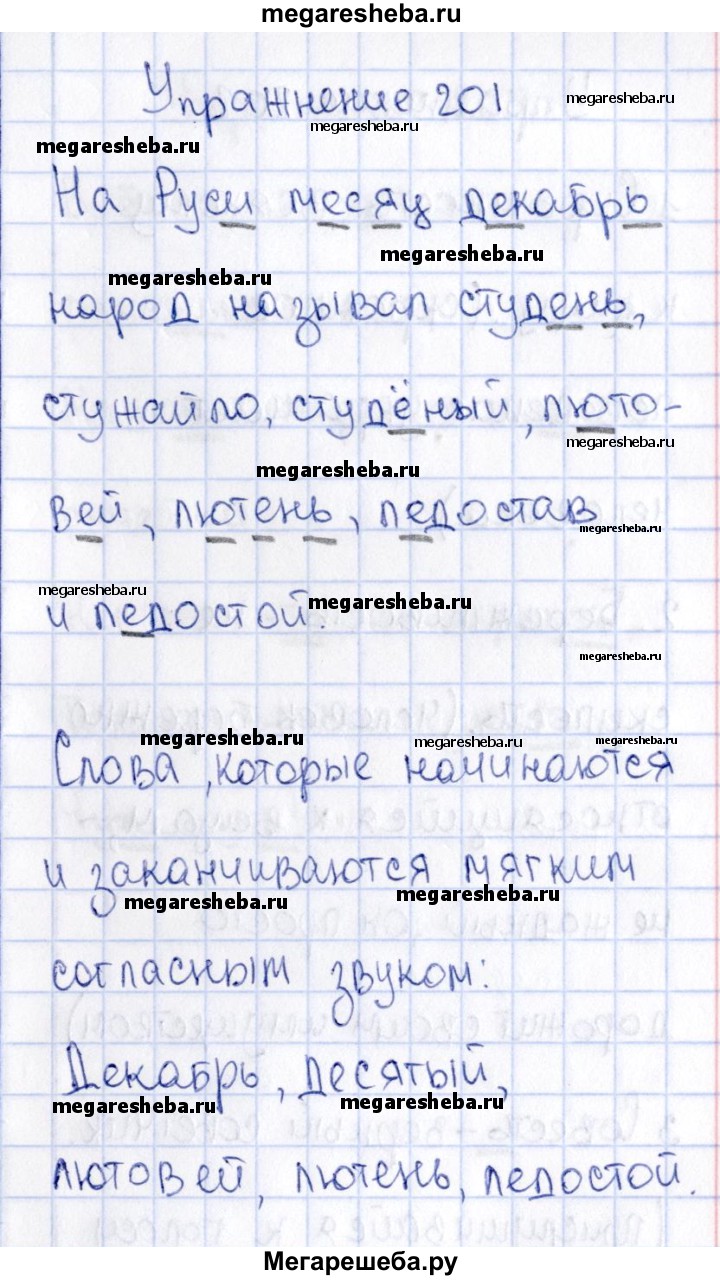 megaresheba.ru
Упражнение 201
megaresheba.ru
megaresheba.ru
megaresheba.ru
На Руси месяц декабрь
megaresheba.ru
megaresheba.ru
народ называл студень,
стужайло, студёный, люто-
megaresheba.ru
megaresheba.ru
вей, лютень, ледостав
megaresheba.ru
megaresheba.ru
megaresheba.ru
и ледостой.
megaresheba.ru
megaresheba.ru
megaresheba.ru
megaresheba.ru
Слова, которые начинаются
и заканчиваются мягким
megaresheba.ru
megaresheba.ru
согласным звуком:
Декабрь, десятый,
megaresheba.ru
megaresheba.ru
лютовей, лютень, ледостой.
Мегарешеба.ру